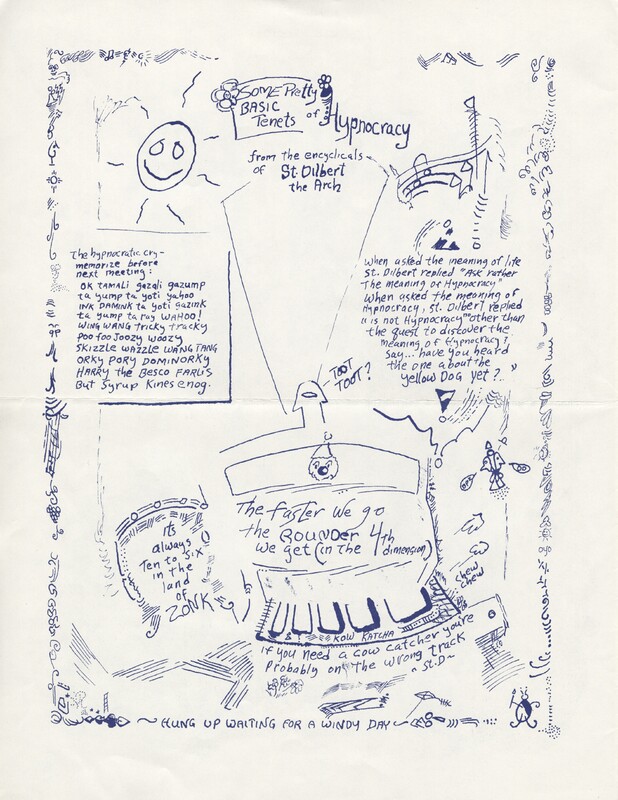 SOME Pretty
BASIC
Tenets of Hypnocracy
from the encyclicals
of St. Dilbert
the Arch
The hypnocratic cry-
memorize before
next meeting:
OK TAMALI gazali gazump
ta yump ta yoti yahoo
INK DAMINK ta yoti gazink
ta yump ta ray WAHOO!
WING WANG tricky tracky
POO foo Joozy woozy
SKIZZLE WAZZLE WANG TANG
ORKY PORY DOMINORKY
HARRY the BESCO FARLIS
But Syrup Kines enog.
When asked the meaning of life
St. Dilbert replied "Ask rather
The meaning of Hypnocracy"
When asked the meaning of
Hypnocracy, St. Dilbert replied
"is not Hypnocracy other than
the quest to discover the
meaning of Hypnocracy?
Say... have you heard
the one about the
yellow DOG yet?.."
TOOT
TOOT?
The faster we go
the ROUNDER
we get (in the 4th dimension)
its
always
Ten to Six
in the
land
of
ZONK
chew
chew
KOW KATCHA
if you need a cow catcher you're
Probably on the wrong track
~ St. D ~
~ HUNG UP WAITING FOR A WINDY DAY ~